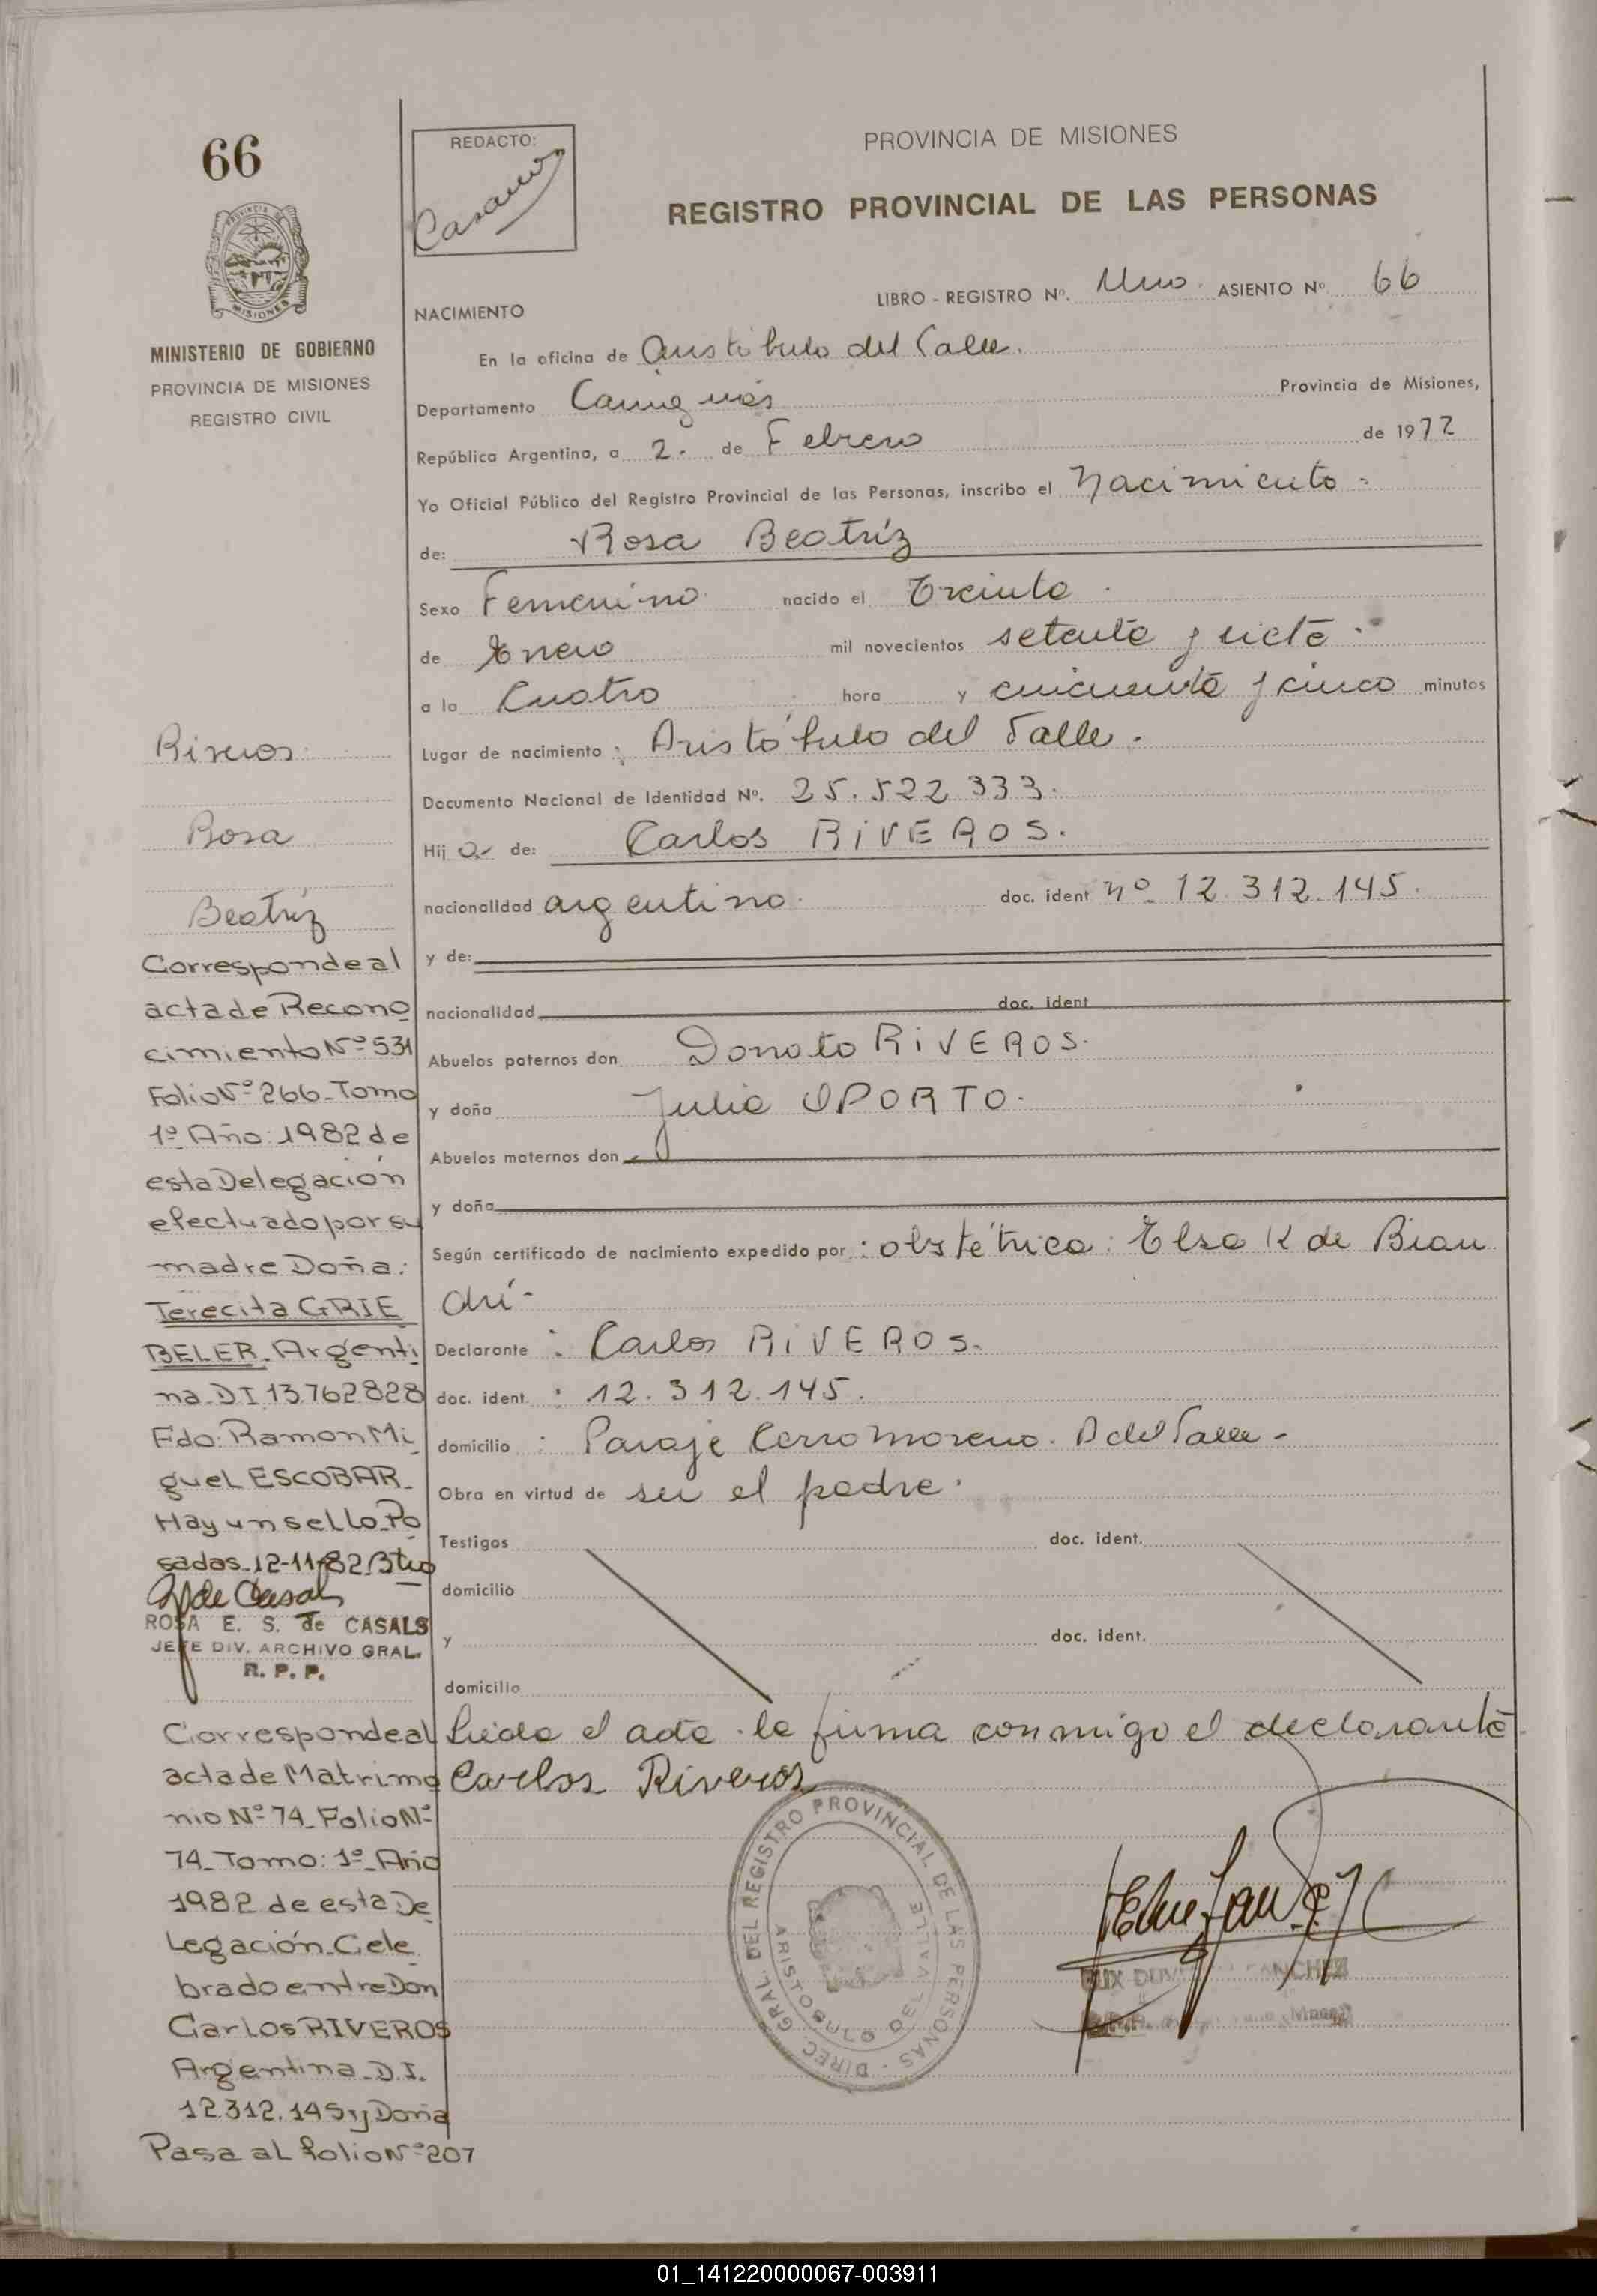 66
REDACTO:
Casano
PROVINCIA DE MISIONES
REGISTRO PROVINCIAL DE LAS PERSONAS
MISIONES
MINISTERIO DE GOBIERNO
PROVINCIA DE MISIONES
REGISTRO CIVIL
LIBRO - REGISTRO Nº. Uno. ASIENTO Nº. 66
NACIMIENTO
En la oficina de Aristóbulo del Valle.
Departamento Cainguás Provincia de Misiones,
República Argentina, a 2. de Febrero de 1977
Yo Oficial Público del Registro Provincial de las Personas, inscribo el Nacimiento
de: Rosa Beatríz
Sexo Femenino nacido el Treinta
de Enero mil novecientos setenta y siete
a la Cuatro hora y cincuenta y cinco minutos
Lugar de nacimiento : Aristóbulo del Valle.
Documento Nacional de Identidad Nº. 25.522.333.
Hija de: Carlos RIVEROS.
nacionalidad argentino doc. ident nº 12.312.145.
y de:
nacionalidad doc. ident
Abuelos paternos don Donato RIVEROS.
y doña Julia OPORTO.
Abuelos maternos don
y doña
Según certificado de nacimiento expedido por : obstétrica: Elsa K de Bian
chi-
Declarante : Carlos RIVEROS.
doc. ident. : 12.312.145.
domicilio : Paraje Cerro Moreno. A del Valle-
Obra en virtud de ser el padre.
Testigos doc. ident.
domicilio
y doc. ident.
domicilio
Leida el acta la firma conmigo el declarante
Carlos Riveros
DIREC. GRAL. DEL REGISTRO PROVINCIAL DE LAS PERSONAS -
ARISTOBULO DEL VALLE
Riveros
Rosa
Beatríz
Corresponde al
acta de Recono
cimiento Nº 531
Folio Nº 266_Tomo
1º Año: 1982 de
esta Delegación
efectuado por su
madre Doña:
Terecita GRIE
BELER_Argenti
na_D.I 13.762828
Fdo: Ramon Mi
guel ESCOBAR_
Hay un sello_Po
sadas_12-11-82
R de Casals
ROSA E. S. de CASALS
JEFE DIV. ARCHIVO GRAL.
R. P. P.
Corresponde al
acta de Matrimo
nio Nº 74_Folio Nº
74_Tomo: 1º_Año
1982 de esta De
legación_Cele
brado entre Don
Carlos RIVEROS
Argentina_D.I.
12.312.145 y Doña
Pasa al folio Nº 207
01_141220000067-003911